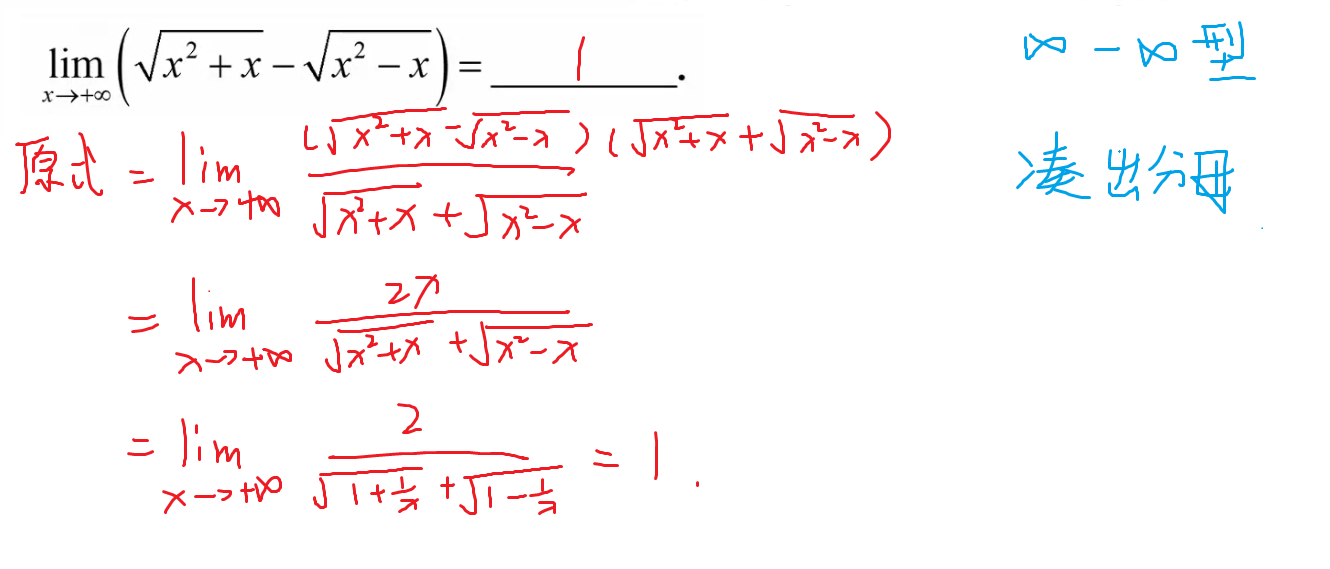 lim x→+∞ (√(x² + x) − √(x² − x)) = 1 .
∞ − ∞ 型
原式 = lim x→+∞ (√(x²+x) − √(x²−x)) (√(x²+x) + √(x²−x)) / (√(x²+x) + √(x²−x))
凑出分母
= lim x→+∞ 2x / (√(x²+x) + √(x²−x))
= lim x→+∞ 2 / (√(1+1/x) + √(1−1/x)) = 1 .